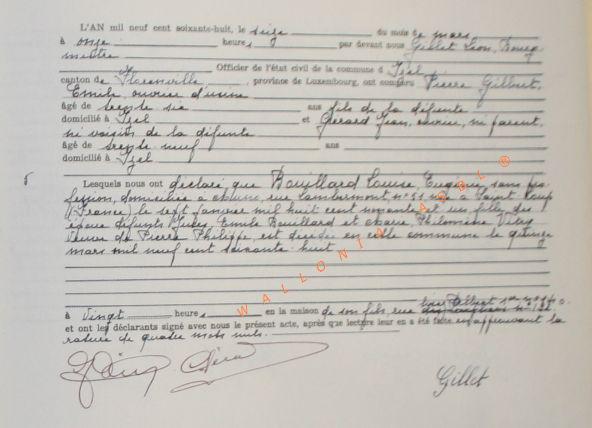 L'AN mil neuf cent soixante-huit, le seize du mois de mars
à onze heures par devant nous Gillet Léon, Bourg-
mestre
Officier de l'état civil de la commune d'Izel,
canton de Florenville, province de Luxembourg, ont comparu Pierre Gilbert,
Emile, ouvrier d'usine
âgé de trente six ans fils de la défunte
domicilié à Izel et Gérard Jean, ouvrier, ni parent,
ni voisin de la défunte
âgé de trente neuf ans
domicilié à Izel
5
Lesquels nous ont déclaré que Bouillard Louise, Eugénie, sans pro-
fession, domiciliée à rue née à Saint Loup
(France) le sept janvier mil huit cent nonante et un fille des
époux défunts Jules, Emile Bouillard et Marie Philomène
veuve de Pierre Philippe, est décédée en cette commune le quinze
mars mil neuf cent soixante huit
WALLONIA ASBL ®
à vingt heures en la maison de son fils, rue
et ont les déclarants signé avec nous le présent acte, après que lecture leur en a été faite en approuvant la
rature de quatre mots nuls.
Gillet